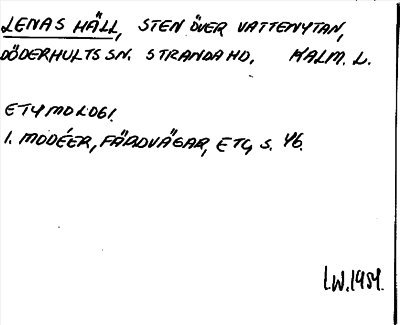 LENAS HÄLL, STEN ÖVER VATTENYTAN,
DÖDERHULTS SN. STRANDA HD. KALM. L.
ETYMOLOGI.
I. MODÉER, FÄRDVÄGAR, ETC, S. 46.
I.W. 1951.